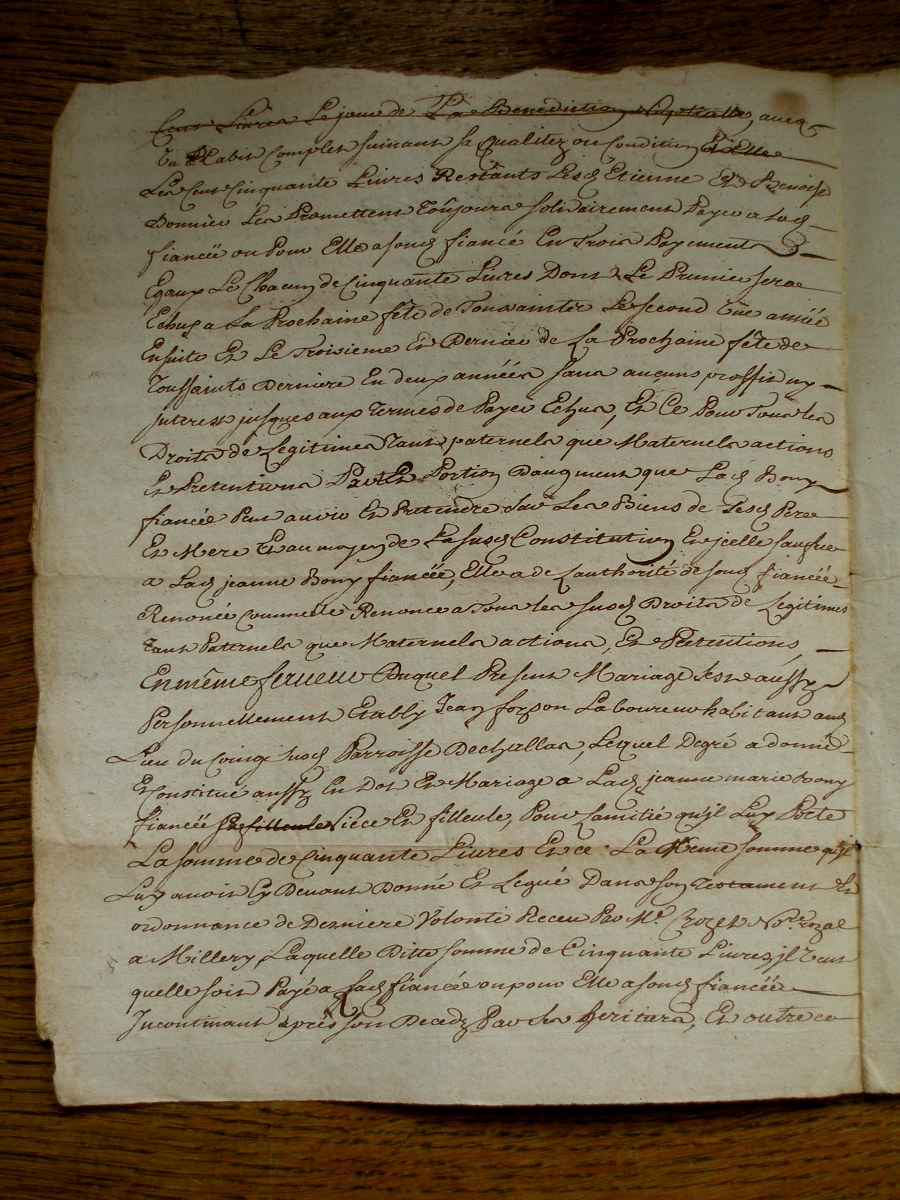 Cent Livres Le jour de La Benediction Nuptialle, avecq
Un Habit Complet suivant sa Qualitez ou Condition
Les Cent Cinquante Livres Restants Lesd Etienne Et Benoist
Donnier Les Promettent Toûjours solidairement Payer a Lad
fiancée ou Pour Elle a sond fiancé En Trois Payements
Egaux Le Chacun de Cinquante Livres Dont Le Premier sera
Echus a La Prochaine fête de Toussaints Le second Une année
Ensuite Et Le Troisieme Et Dernier de La Prochaine fête de
Toussaints Derniere En deux années sans aucuns proffit ny
Interest jusques aux Termes de Payer Echus, Et Ce Pour Tous les
Droits de Legitimes Tant paternels que Maternels actions
Et Pretentions Part Et Portion Daugment que Lad Bony
fiancée Peut avoir Et Pretendre sur Les Biens de Sesd Pere
Et Mere Et au moyen de La susd Constitution Et jcelle sauffve
a Lad jeanne Bony fiancée, Elle a de L'authorité de sond fiancéé
Renoncé comme Elle Renonce a Tous les susd Droits de Legitimes
Tant Paternels que Maternels actions, Et Pretentions,
En même faveur Duquel Present Mariage s'est aussy
Personnellement Etably Jean Laboureur habitant aud
Lieu du Coing susd Parroisse Dechallas, Lequel Degré a donné
Et Constitué aussy En Dot Et Mariage a Lad jeanne marie Bony
fiancéé sa filleule Niece Et filleule, Pour L'amitié qu'jl Luy Porte
La somme de Cinquante Livres Et ce La même somme qu'jl
Luy avoit Cy Devant Donné Et Legué Dans son Testament Et
ordonnance de Derniere Volonté Receu Par Me Crozet Nore royal
a Millery, Laquelle Ditte somme de Cinquante Livres, jl Veut
quelle soit Payé a Lad fiancéé ou pour Elle a sond fiancéé
Incontinant après son Decedz Par ses heritiers, Et outre ce